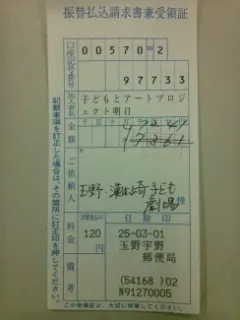 振替払込請求書兼受領証
口座記号番号
00570=2
97733
加入者名
子どもとアートプロジェクト明日
金額
千百十万千百十円
ご依頼人
玉野灘崎子ども劇場
様
料金
120
円
日附印
25-03-01
玉野宇野
郵便局
備考
(54168 )02
N91270005
記載事項を訂正した場合は、その箇所に訂正印を押してください。
この受領証は、大切に保管してください。